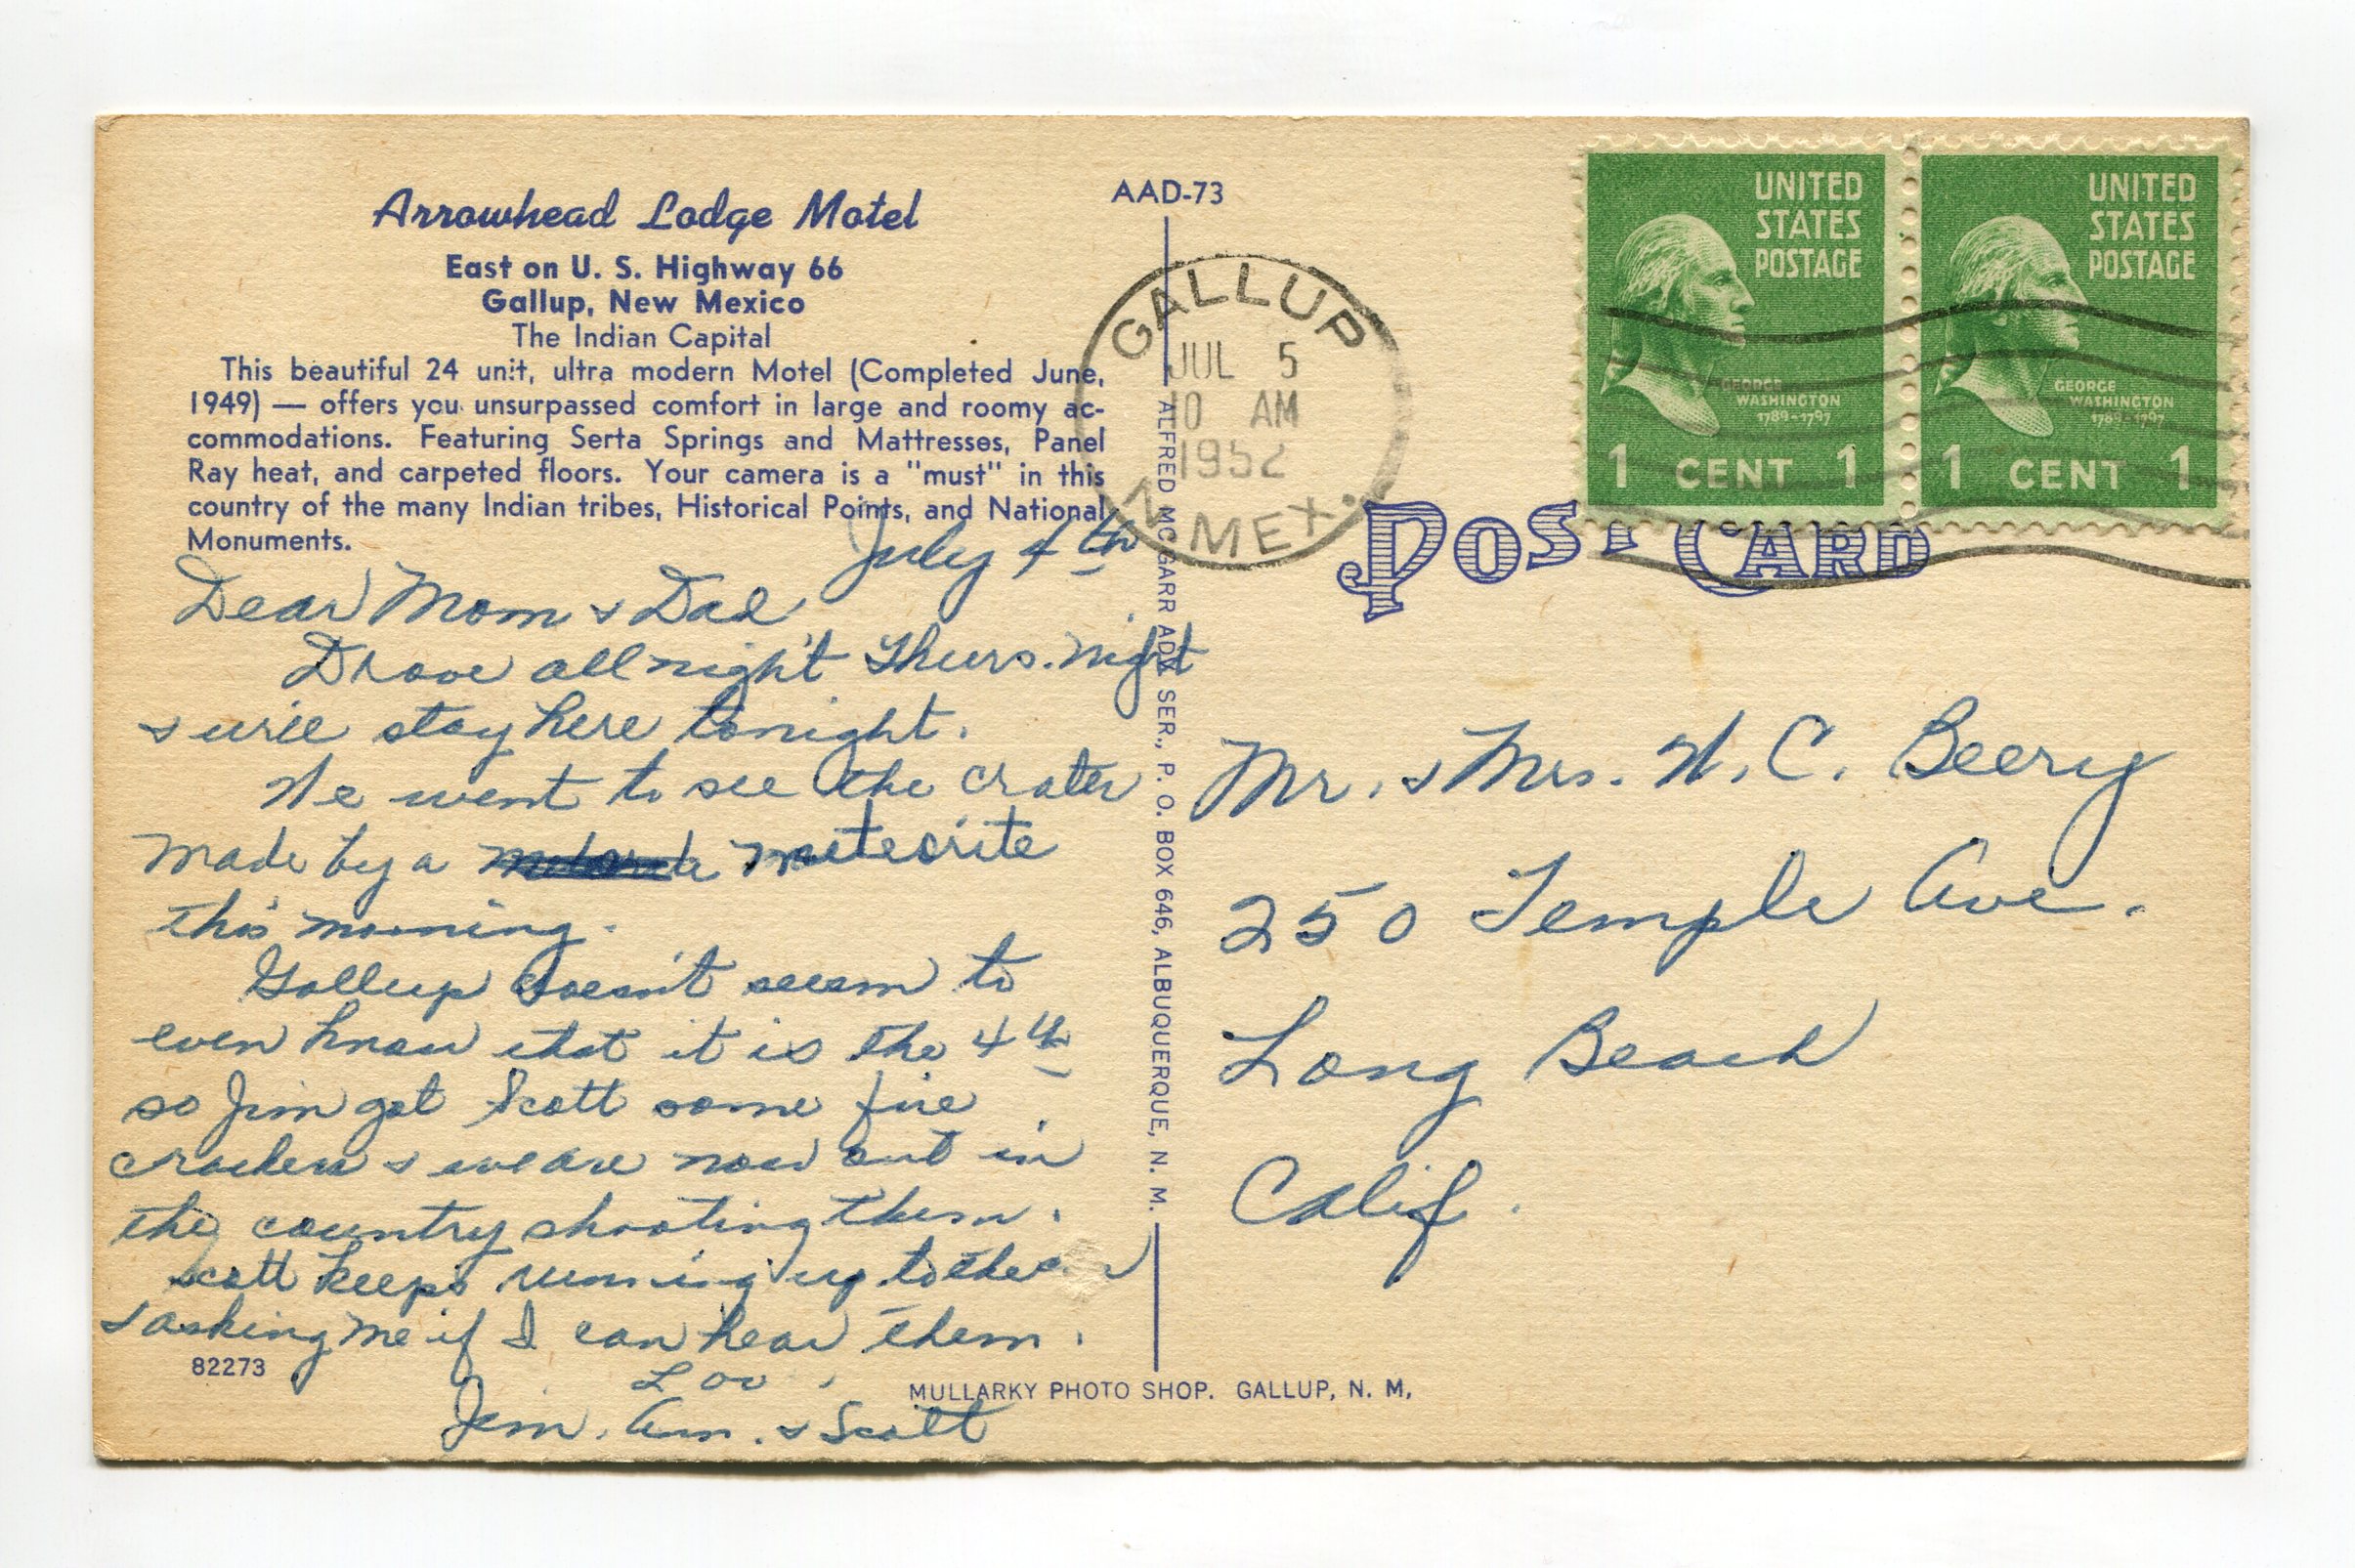 Arrowhead Lodge Motel
East on U. S. Highway 66
Gallup, New Mexico
The Indian Capital
This beautiful 24 unit, ultra modern Motel (Completed June,
1949) — offers you unsurpassed comfort in large and roomy ac-
commodations. Featuring Serta Springs and Mattresses, Panel
Ray heat, and carpeted floors. Your camera is a "must" in this
country of the many Indian tribes, Historical Points, and National
Monuments.
July 4th
Dear Mom & Dad
Drove all night Thurs. night
& will stay here tonight.
We went to see the crater
made by a meteorite
this morning.
Gallup doesn't seem to
even know that it is the 4th
so Jim got Scott some fire
crackers & we are now out in
the country shooting them.
Scott keeps running up to the
& asking me if I can hear them.
Jim, Ann, & Scott
82273
AAD-73
ALFRED MC GARR ADV. SER., P. O. BOX 646, ALBUQUERQUE, N. M.
MULLARKY PHOTO SHOP. GALLUP, N. M.
GALLUP
JUL 5
10 AM
1952
N. MEX.
UNITED
STATES
POSTAGE
GEORGE
WASHINGTON
1789-1797
1 CENT 1
UNITED
STATES
POSTAGE
GEORGE
WASHINGTON
1789-1797
1 CENT 1
POST CARD
Mr. & Mrs. W. C. Beery
250 Temple Ave.
Long Beach
Calif.